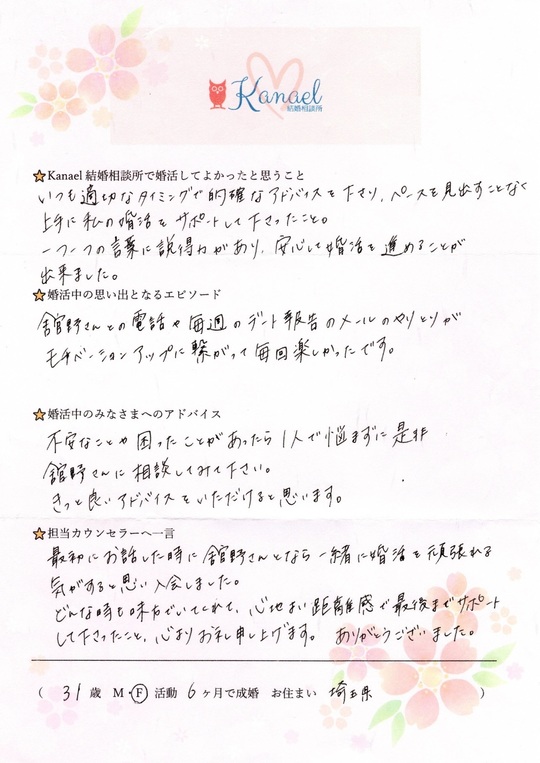 Kanael
結婚相談所
Kanael 結婚相談所で婚活してよかったと思うこと
いつも適切なタイミングで的確なアドバイスを下さり、ペースを見出すことなく
上手に私の婚活をサポートして下さったこと。
一つ一つの言葉に説得力があり、安心して婚活を進めることが
出来ました。
婚活中の思い出となるエピソード
舘野さんとの電話や毎週のデート報告のメールのやりとりが
モチベーションアップに繋がって毎回楽しかったです。
婚活中のみなさまへのアドバイス
不安なことや困ったことがあったら1人で悩まずに是非
舘野さんに相談してみて下さい。
きっと良いアドバイスをいただけると思います。
担当カウンセラーへ一言
最初にお話した時に舘野さんとなら一緒に婚活を頑張れる
気がすると思い入会しました。
どんな時も味方でいてくれて、心地よい距離感で最後までサポート
して下さったこと、心よりお礼申し上げます。 ありがとうございました。
( 31 歳 M・F 活動 6 ヶ月で成婚 お住まい 埼玉県 )